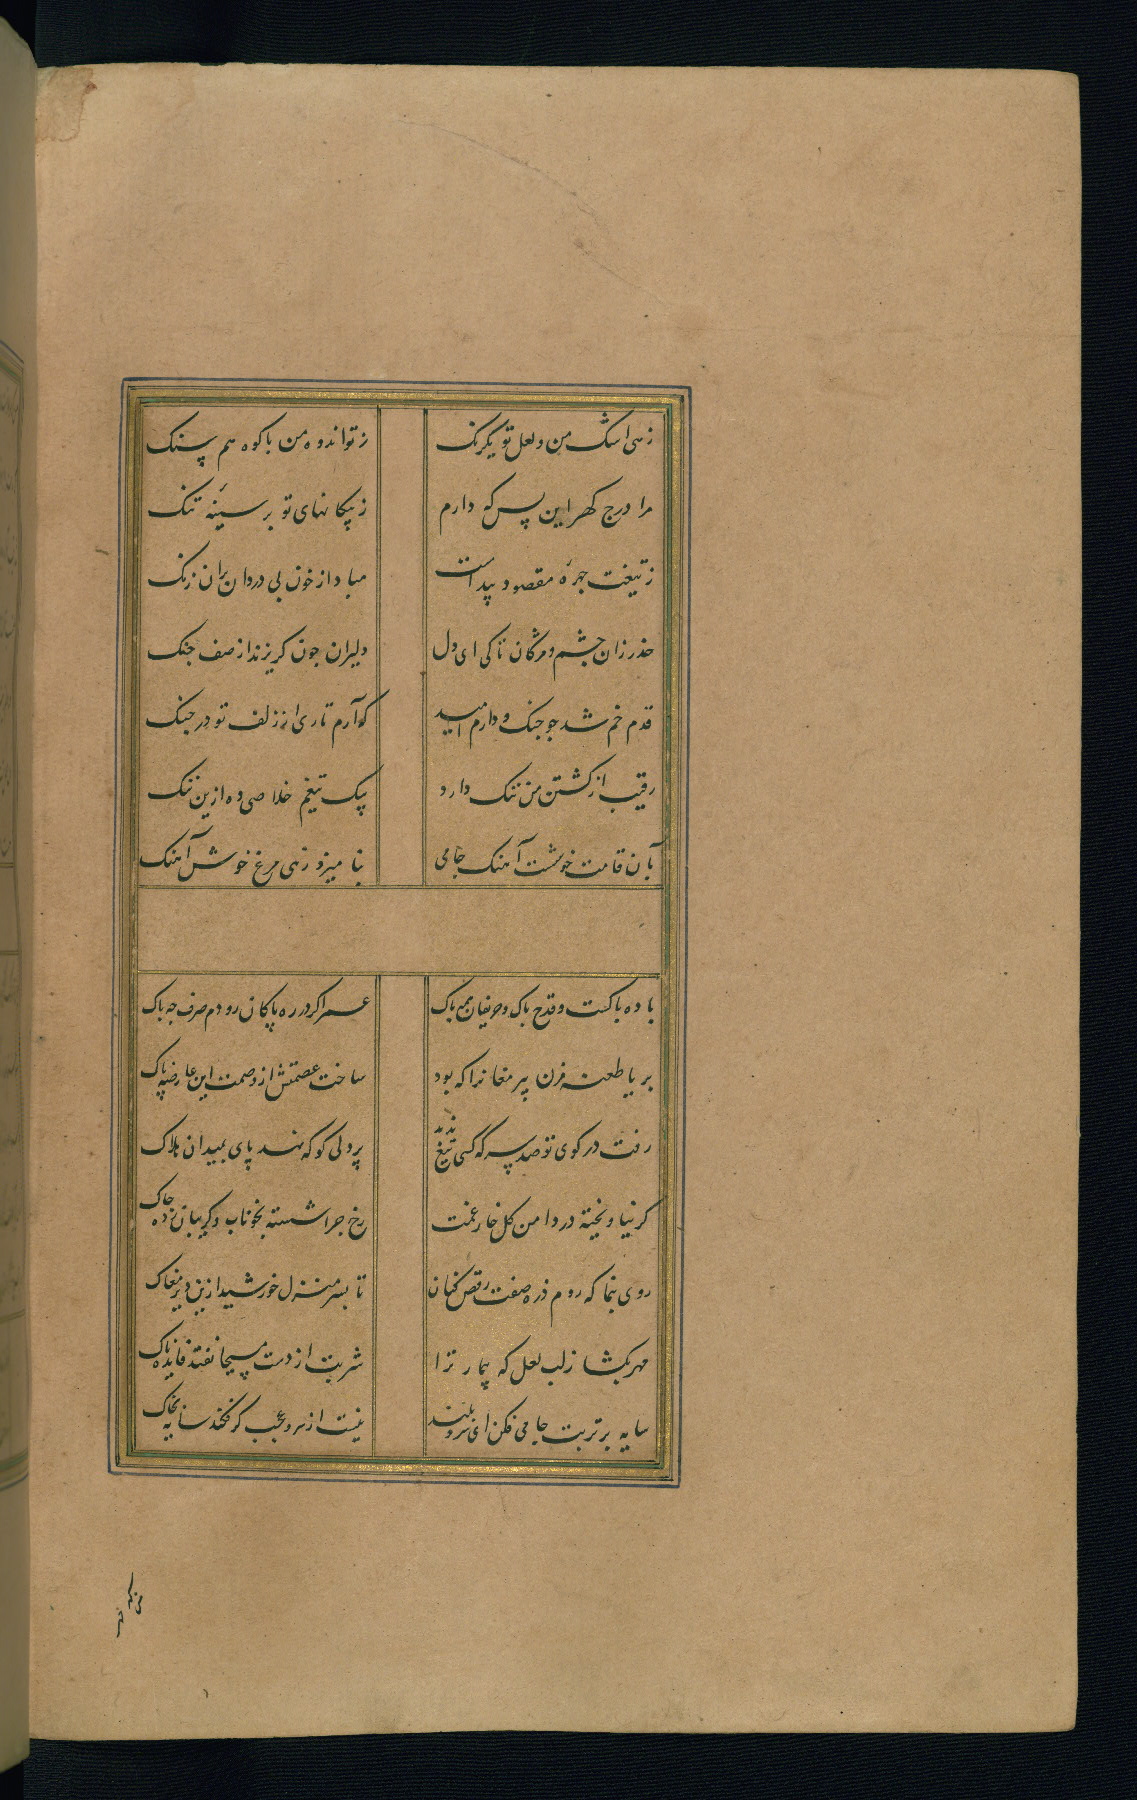 زهی اشک من و لعل تو یکرنک ز تو اندوه من با کوه هم سنک
مرا درج کهر این پس که دارم ز پیکانهای تو بر سینهٔ تنک
ز تیغت چهرهٔ مقصود پیداست مباد از خون بی دردان بران زنک
حذر زان چشم و مژکان تا کی ای دل دلیران چون کریزند از صف جنک
قدم خم شد چو چنک و دارم امید که آرم تاری از زلف تو در چنک
رقیب از کشتن من ننک دارد بیک تیغم خلاصی ده ازین ننک
بآن قامت خوشست آهنک جامی بنامیزد زهی مرغ خوش آهنک
باده پاکست و قدح پاک و حریفان همه پاک عمر اکر در ره پاکان رودم صرف چه باک
بریا طعنه مزن پیر مغانرا که بود ساخت عصمتش از وصمت این عارضه پاک
رفت در کوی تو صد سر که کسی تیغ ندید پردلی کو که نهد پای بمیدان هلاک
کر نیاویخته در دامن کل خار غمت رخ چرا شسته بخوناب و کریبان زده چاک
روی بنما که روم ذره صفت رقص کنان تا بسر منزل خورشید ازین دیر مغاک
مهر بکشا ز لب لعل که بیمار ترا شربت از دست مسیحا نفتد فایده ناک
سایه بر تربت جامی فکن ای سرو بلند نیست از سرو عجب کر فکند سایه بخاک
من که